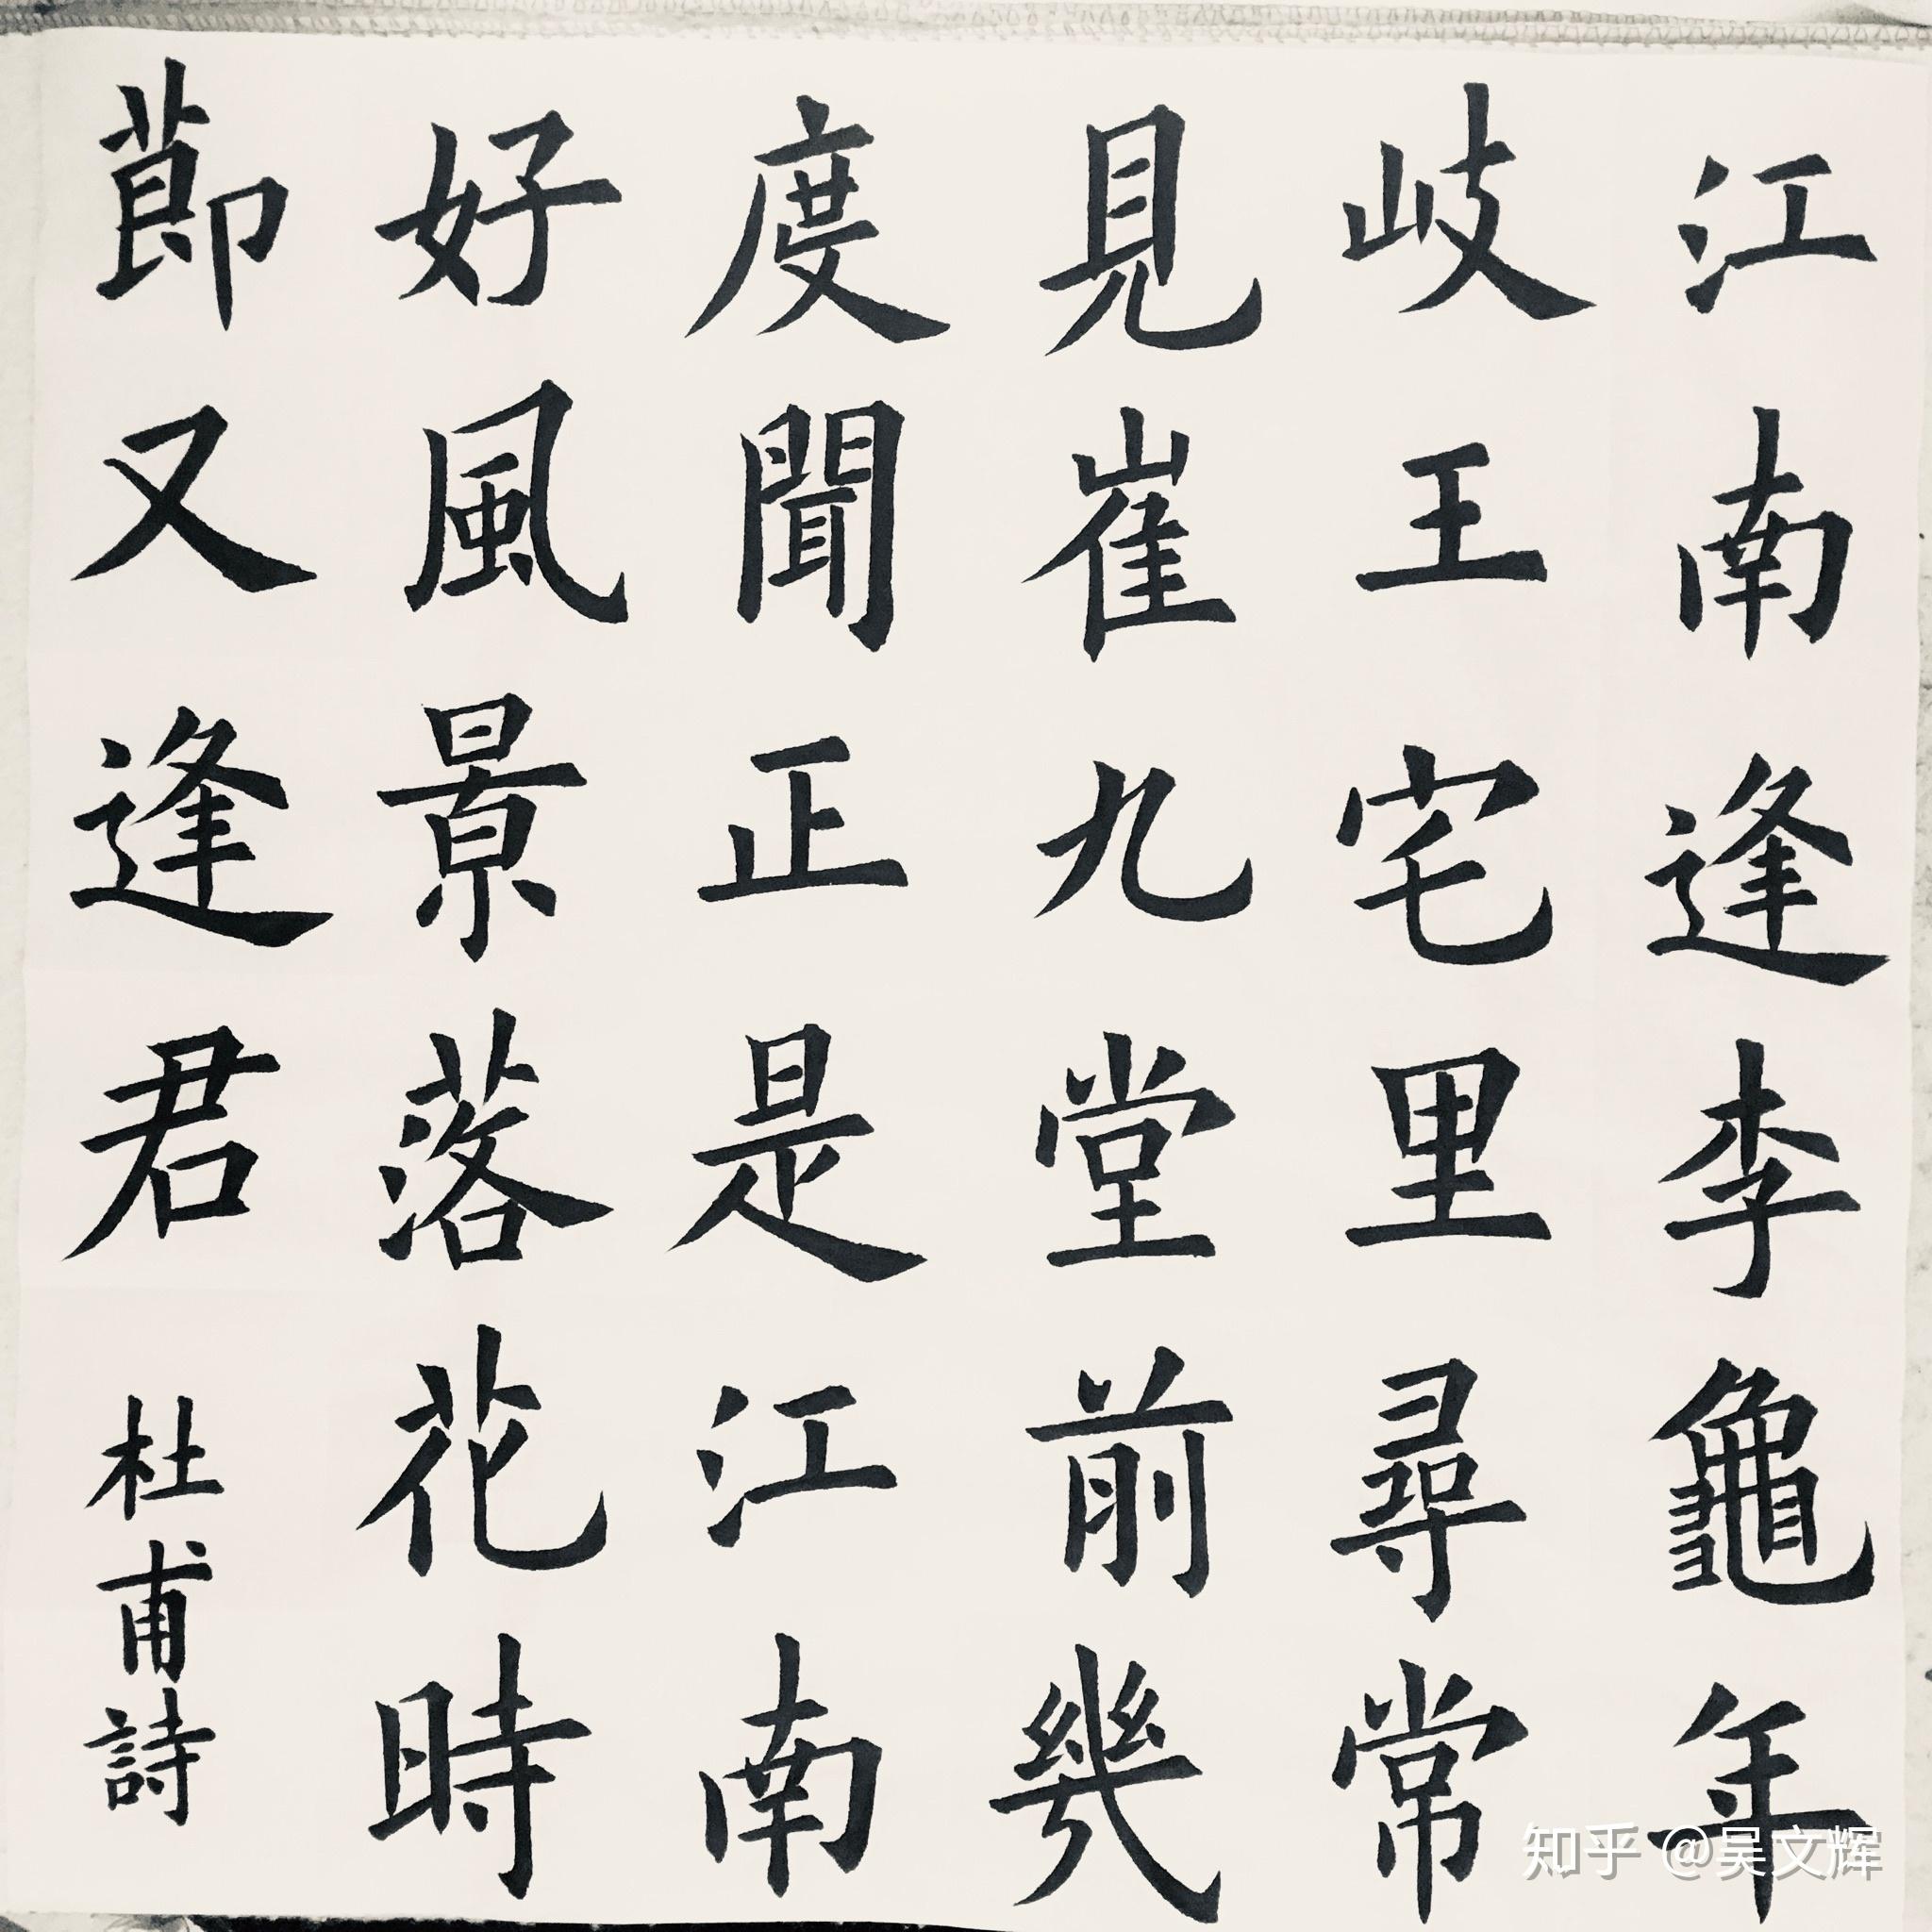 江南逢李龜年
岐王宅里尋常
見崔九堂前幾
度聞正是江南
好風景落花時
莭又逢君
杜甫詩
知乎 @吴文辉